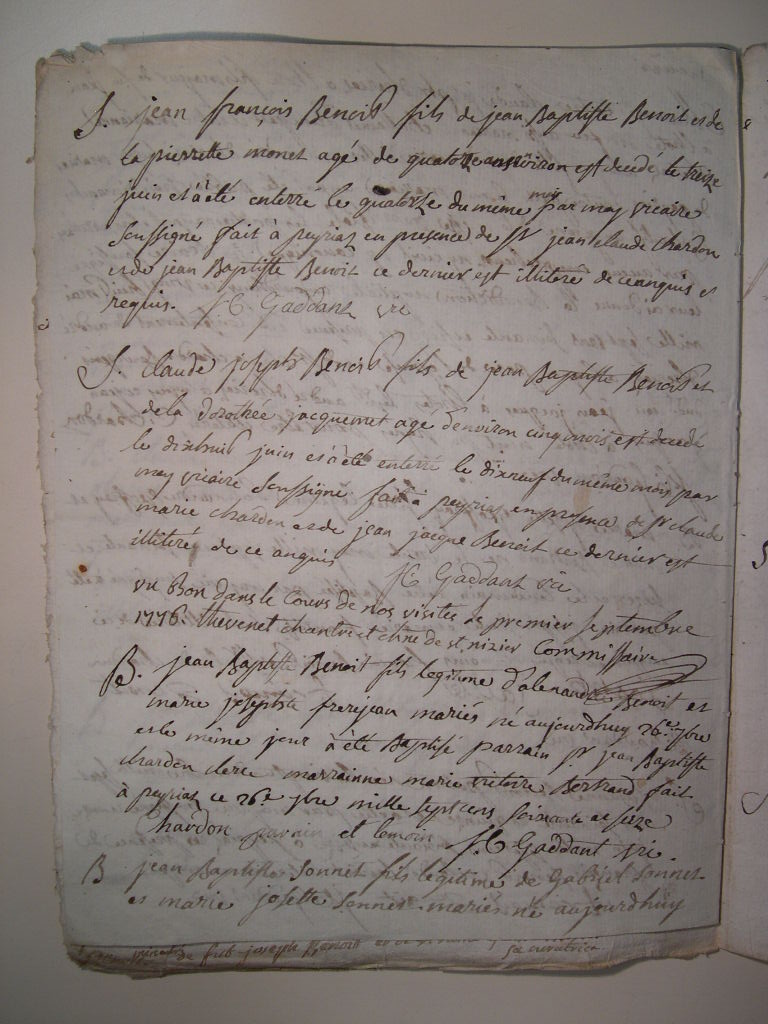 S. jean françois Benoit fils de jean Baptiste Benoit et de
la pierrette monet agé de quatorze ans environ est decedé le treize
juin et à été enterré le quatorze du même mois par moy vicaire
soussigné fait à peyriaz en presence de Sr jean claude chardon
et de jean Baptiste Benoit ce dernier est illitéré de ce anquis et
requis. JC Gaddant vic
S. claude joseph Benoit fils de jean Baptiste Benoit et
de la Dorothée jacquemet agé d'environ cinq mois est decedé
le dixhuit juin et à été enterré le dixneuf du même mois par
moy vicaire soussigné fait à peyriaz en presence de Sr claude
marie chardon et de jean jacque Benoit ce dernier est
illitéré de ce anquis JC Gaddant vic
vu Bon dans le cours de nos visites ce premier septembre
1776. thevenet chantre et chne de st nizier Commissaire
B. jean Baptiste Benoit fils legitime d'alexandre Benoit et
marie josephte frerejean mariés né aujourdhuy 26e 7bre
et le même jour à été Baptisé parrain Sr jean Baptiste
chardon clerc marrainne marie victoire Bertrand fait
à peyriaz ce 26e 7bre mille sept cens soixante et seize
Chardon parain et temoin JC Gaddant vic.
B jean Baptiste Sonnet fils legitime de Gabriel Sonnet
et marie josette Sonnet mariés né aujourdhuy
de fut joseph Benoit
sa curatrice